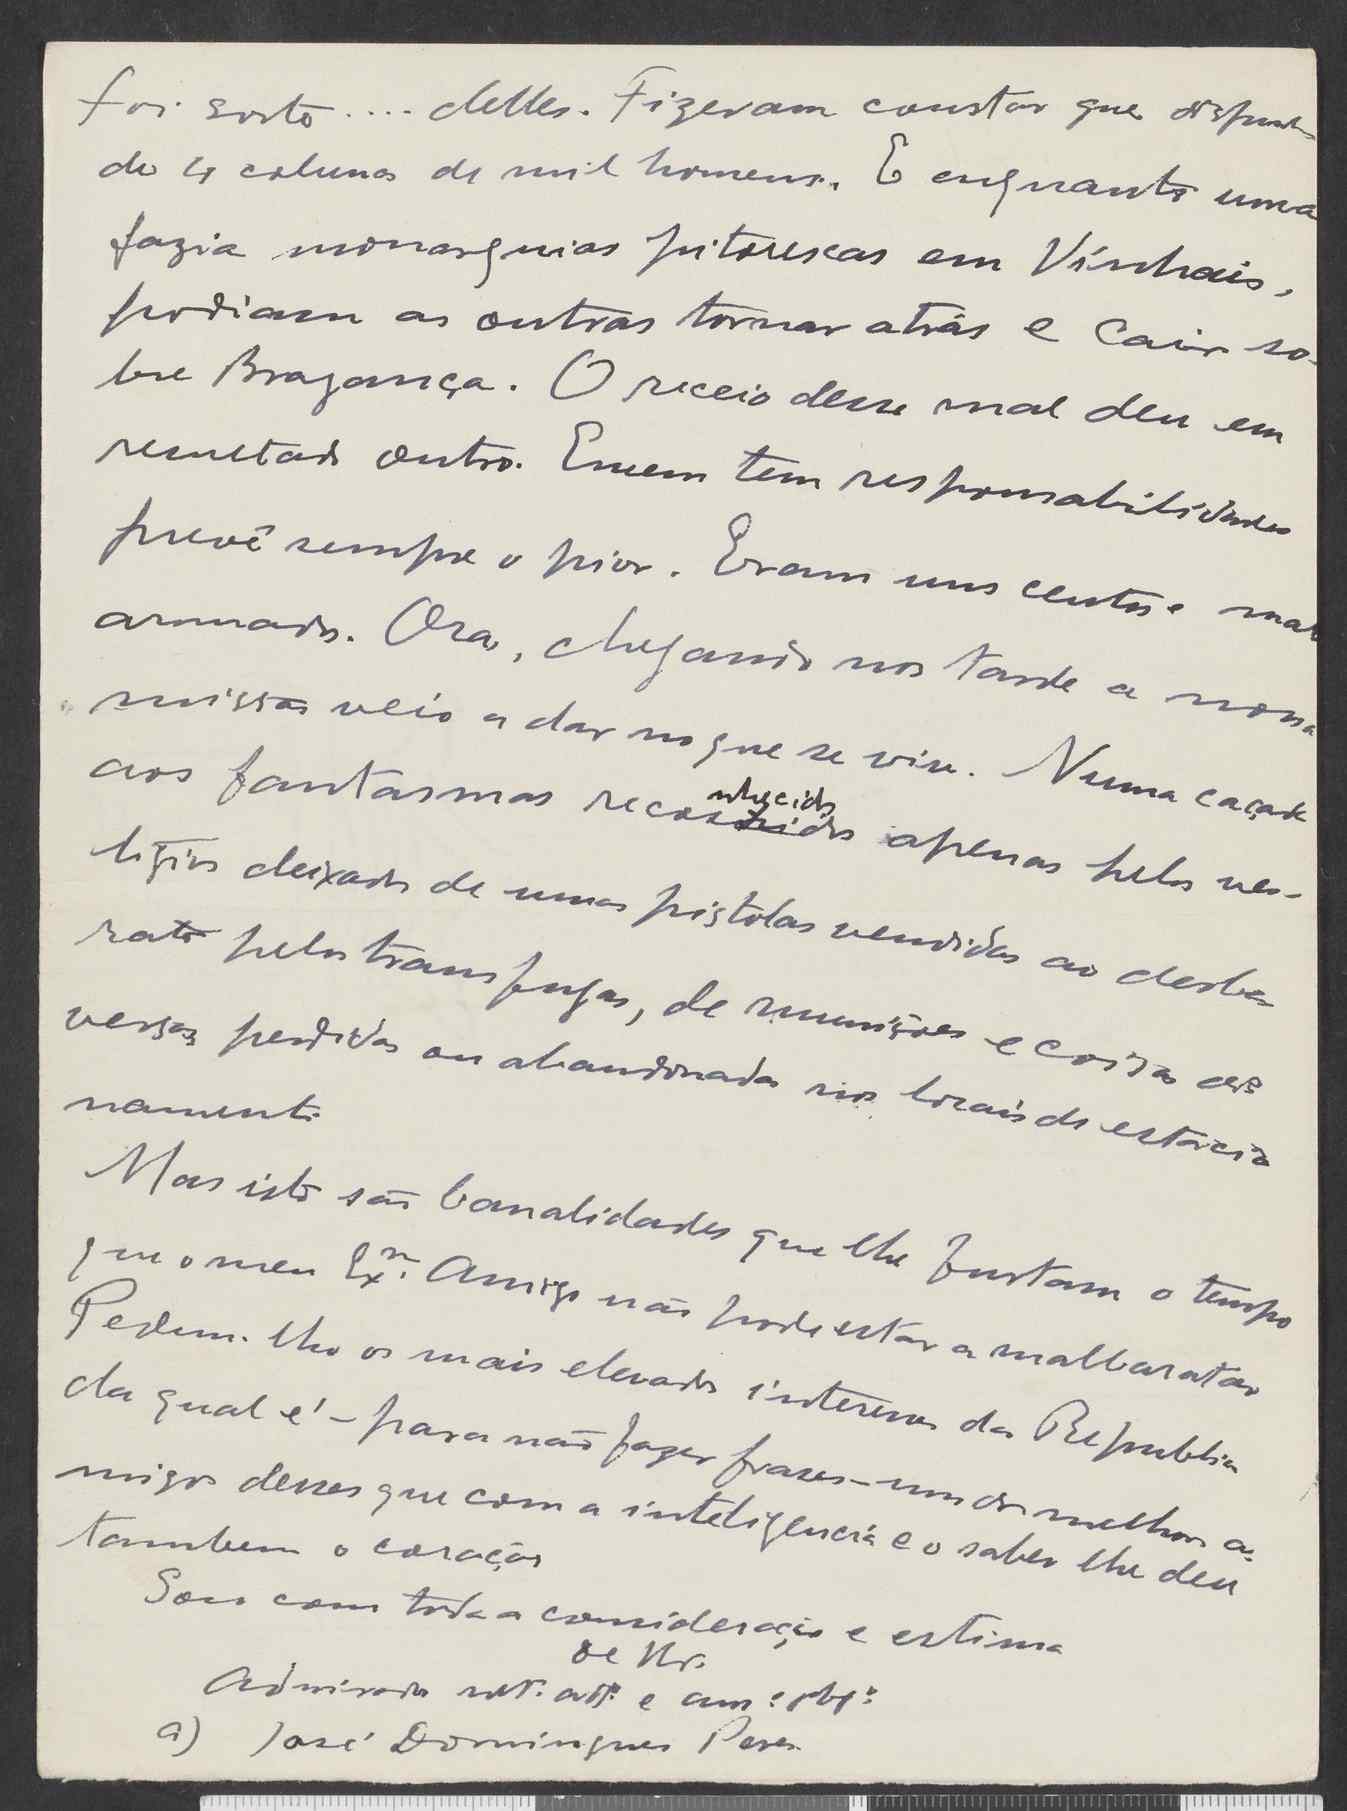 foi sorte .... delles. Fizeram constar que dispunham
de 4 colunas de mil homens. E enquanto uma
fazia monarquias pitorescas em Vinhais,
podiam as outras tornar atrás e cair so-
bre Bragança. O receio desse mal deu em
resultado outro. Quem tem responsabilidades
prevê sempre o pior. Eram uns centos e mal
armados. Ora, chegando nós tarde a nossa
missão veio a dar no que se viu. Numa caçada
aos fantasmas reconhecidos apenas pelos ves-
tigios deixados de umas pistolas vendidas ao desba-
rato pelos transfugas, de munições e coisas di-
versas perdidas ou abandonadas nos locais de estacio
namento.
Mas isto são banalidades que lhe furtam o tempo
que o meu Exº. Amigo não pode estar a malbaratar
Pedem-lho os mais elevados interesses da Republica
da qual é - para não fazer frases - um dos melhores a-
migos desses que com a inteligencia e o saber lhe deu
tambem o coração
Sou com toda a consideração e estima
de V.
Admirador mtº. attº. e amº. obgº.
a) José Domingues Peres